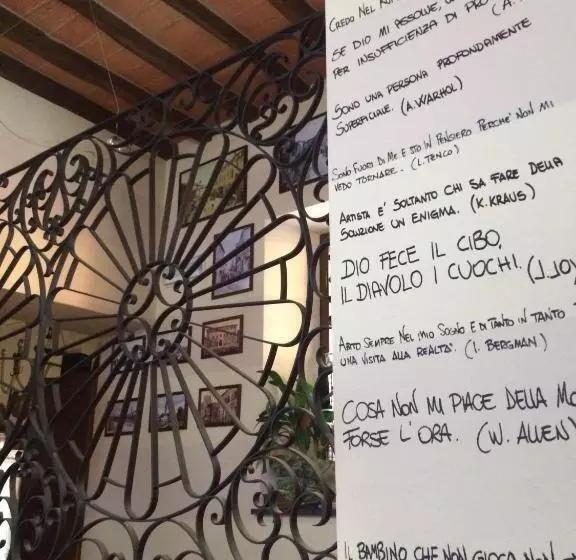 CREDO NEL
SE DIO MI ASSOLVE,
PER INSUFFICIENZA DI (A.
SONO UNA PERSONA PROFONDAMENTE
SUPERFICIALE. (A. WARHOL)
SONO FUORI DI ME E STO IN PENSIERO PERCHE' NON MI
VEDO TORNARE. (L. TENCO)
ARTISTA E' SOLTANTO CHI SA FARE DELLA
SOLUZIONE UN ENIGMA. (K. KRAUS)
DIO FECE IL CIBO,
IL DIAVOLO I CUOCHI. (J. JOY
SEMPRE NEL MIO SOGNO E DI TANTO IN TANTO
UNA VISITA ALLA REALTA'. (I. BERGMAN)
COSA NON MI PIACE DELLA MO
FORSE L'ORA. (W. ALLEN)
IL BAMBINO CHE NON GIOCA NON